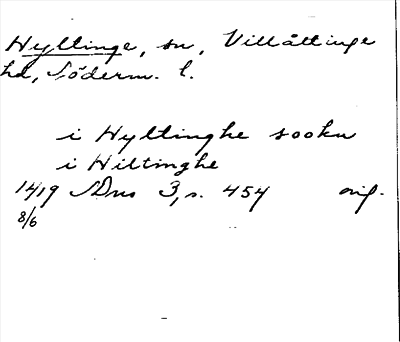 Hyltinge, sn, Villåttinge
hd, Söderm. l.
i Hyltinghe sookn
i Hiltinghe
1419 SDns 3, s. 454 orig.
8/6